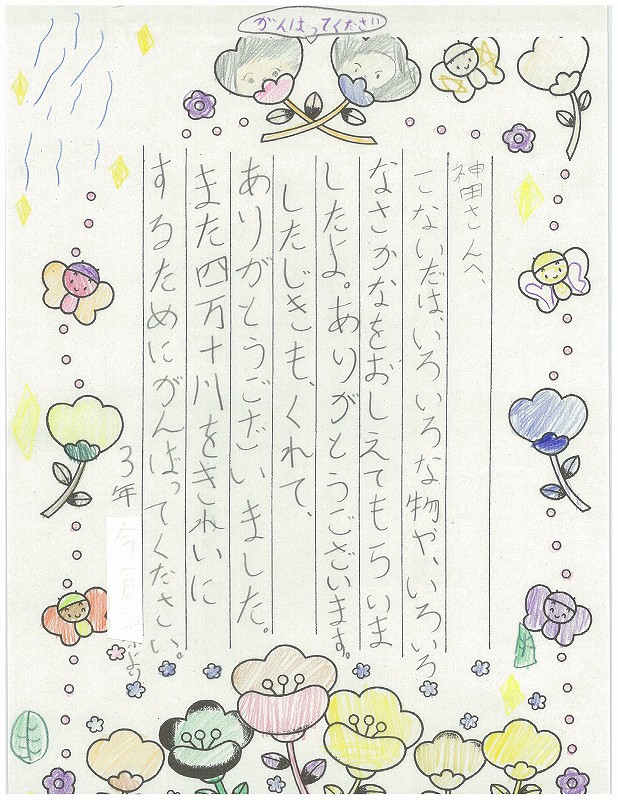 がんばってください
神田さんへ、
こないだは、いろいろな物や、いろいろ
なさかなをおしえてもらいま
したよ。ありがとうございます。
したじきも、くれて、
ありがとうございました。
また四万十川をきれいに
するためにがんばってください。
3年
より